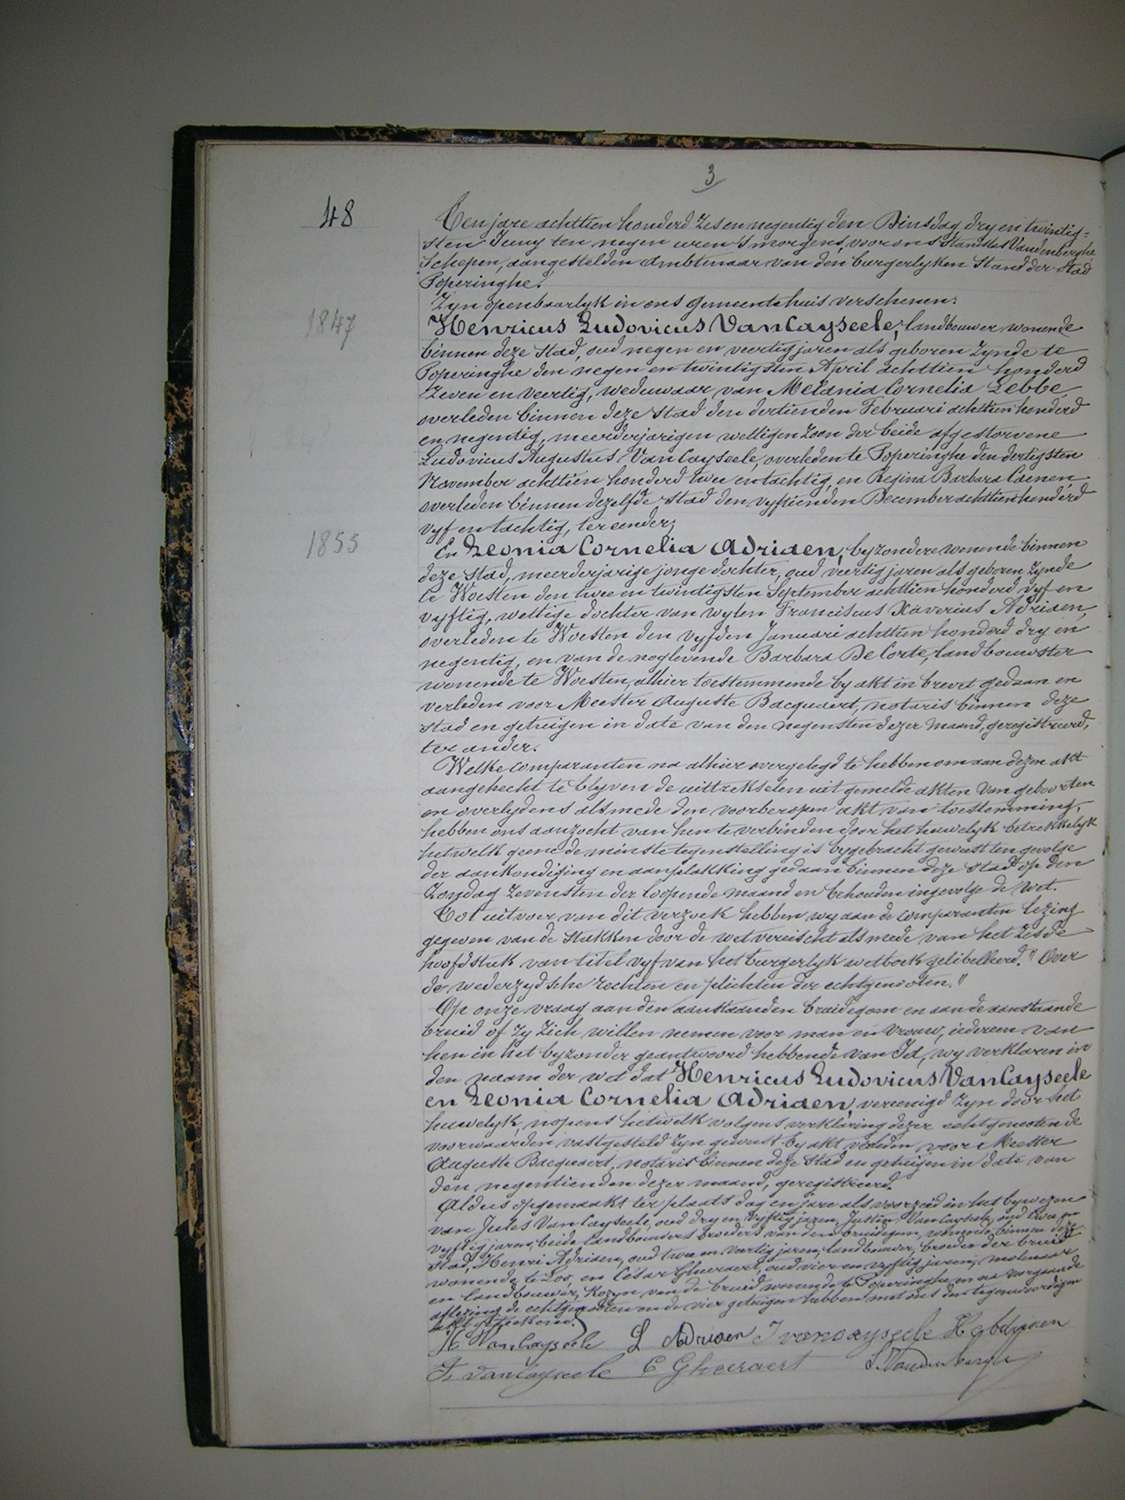 3
48
Ten jare achttien honderd zes en negentig den Dinsdag dry en twintig=
sten Juny ten negen uren 's morgens, voor ons Stanislas Vandenberghe
Schepen, aangestelden Ambtenaar van den burgerlyken Stand der Stad
Poperinghe.
Zyn openbaarlyk in ons gemeentehuis verschenen:
1847
Henricus Ludovicus VanCayseele, landbouwer wonende
binnen deze Stad, oud negen en veertig jaren als geboren zynde te
Poperinghe den negen en twintigsten April achttien honderd
zeven en veertig, weduwaar van Melania Cornelia Lebbe
overleden binnen deze Stad den dertienden Februari achttien honderd
en negentig, meerderjarigen wettigen zoon der beide afgestorvene
Ludovicus Augustus VanCayseele, overleden te Poperinghe den dertigsten
November achttien honderd twee en tachtig, en Regina Barbara Coenen,
overleden binnen dezelfde Stad den vyftienden December achttien honderd
vyf en tachtig, ter eender;
1855
En Leonia Cornelia Adriaen, byzondere wonende binnen
deze Stad, meerderjarige jonge dochter, oud veertig jaren als geboren zynde
te Woesten den twee en twintigsten September achttien honderd vyf en
vyftig, wettige dochter van wylen Franciscus Xaverius Adriaen,
overleden te Woesten den vyfden Januari achttien honderd dry en
negentig, en van de noglevende Barbara De Corte, landbouwster
wonende te Woesten, alhier toestemmende by akt in brevet gedaan en
verleden voor Meester Auguste Bacquaert, notaris binnen deze
stad en getuigen in date van den negensten dezer maand, geregistreerd,
ter ander.
Welke comparanten na alhier overgelegd te hebben om aan dezen akt
aangehecht te blyven de uittrekselen uit gemelde akten van geboorten
en overlydens alsmede den voorberoepen akt van toestemming,
hebben ons aanzocht van hen te verbinden door het huwelyk betrekkelyk
hetwelk geene de minste tegenstelling is bygebracht geweest ten gevolge
der aankondiging en aanplakking gedaan binnen deze Stad op den
Zondag zevensten der loopende maand en behouden ingevolge de Wet.
Tot uitvoer van dit verzoek hebben wy aan de comparanten lezing
gegeven van de stukken door de wet vereischt alsmede van het zesde
hoofdstuk van titel vyf van het burgerlyk wetboek gelibelleerd. "Over
de wederzydsche rechten en plichten der echtgenooten."
Op onze vraag aan den aanstaanden bruidegom en aan de aanstaande
bruid of zy zich willen nemen voor man en vrouw, iedereen van
hen in het byzonder geantwoord hebbende van Ja, wy verklaren in
den naam der wet dat Henricus Ludovicus VanCayseele
en Leonia Cornelia Adriaen, vereenigd zyn door het
huwelyk, nopens hetwelk volgens verklaring dezer echtgenooten de
voorwaarden vastgesteld zyn geweest by akt verleden voor Meester
Auguste Bacquaert, notaris binnen deze Stad en getuigen in date van
den negentienden dezer maand, geregistreerd.
Aldus opgemaakt ter plaats dag en jare als voorzeid in het bywezen
van Jules VanCayseele, oud dry en vyftig jaren, Justin VanCayseele, oud twee en
vyftig jaren, beide landbouwers broeders van den bruidegom, wonende binnen deze
Stad, Henri Adriaen, oud twee en veertig jaren, landbouwer, broeder der bruid
wonende te Loo, en César Gheeraert, oud vier en vyftig jaren, molenaar
en landbouwer, kozyn van de bruid wonende te Poperinghe en na voorgaande
aflezing de echtgenooten en de vier getuigen hebben met ons den tegenwoordigen
akt geteekend.
H. VanCayseele L Adriaen J vancayseele H Adriaen
Js Vancayseele C Gheeraert S. Vandenberghe